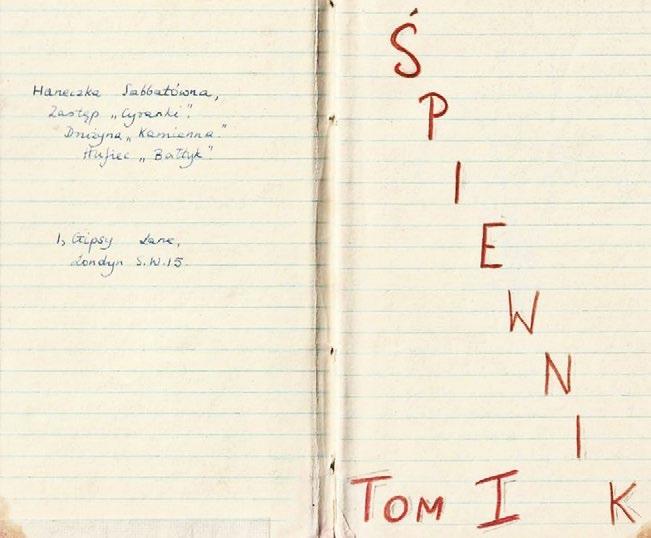 Haneczka Sabbatówna,
Zastęp „Cyranki".
Drużyna „Kamienna"
Hufiec „Bałtyk".
1, Gipsy Lane,
Londyn S.W.15.
ŚPIEWNIK
TOM I